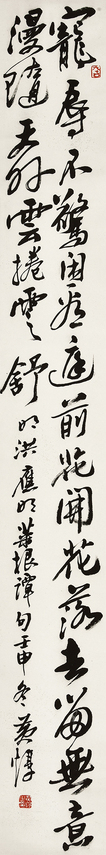 寵辱不驚閒看庭前花開花落去留無意
漫隨天外雲捲雲舒 明洪應明菜根譚句壬申冬黃惇